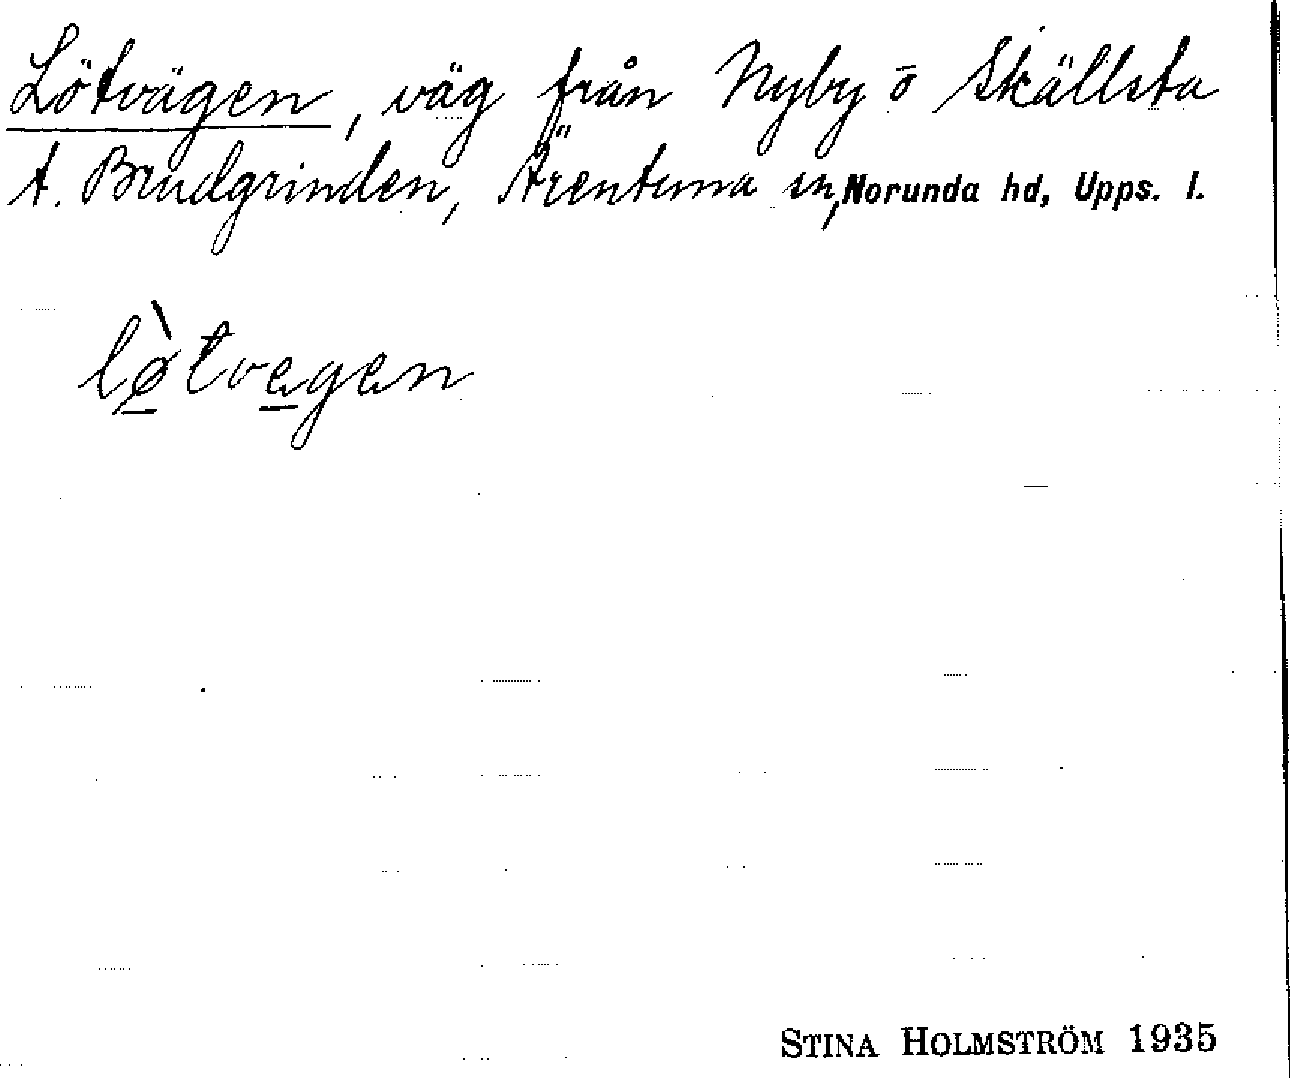 Lötvägen, väg från Nyby ō Skällsta
t. Brudgrinden, Ärentuna sn, Norunda hd, Upps. l.
lø̠̀tvægen
STINA HOLMSTRÖM 1935